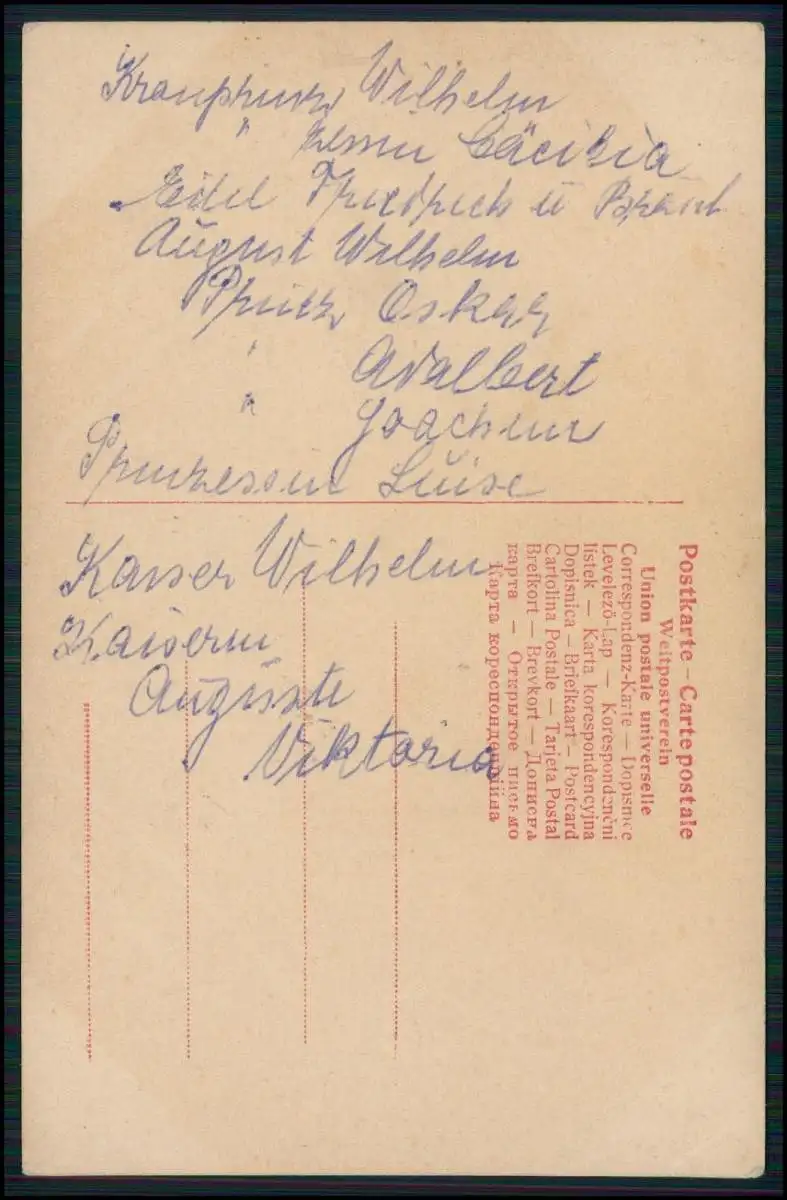 Kronprinz Wilhelm
" zessin Cäcilia
Eitel Friedrich u Braut
August Wilhelm
Prinz Oskar
" Adalbert
" Joachim
Prinzessin Luise
Kaiser Wilhelm
Kaiserin
Auguste
Viktoria
Postkarte – Carte postale
Weltpostverein
Union postale universelle
Correspondenz-Karte — Dopisnice
Levelező-Lap — Korespondenční
lístek — Karta korespondencyjna
Dopisnica — Briefkaart — Postcard
Cartolina Postale — Tarjeta Postal
Brefkort — Brevkort — Дописна
карта — Открытое письмо
Карта кореспонденційна